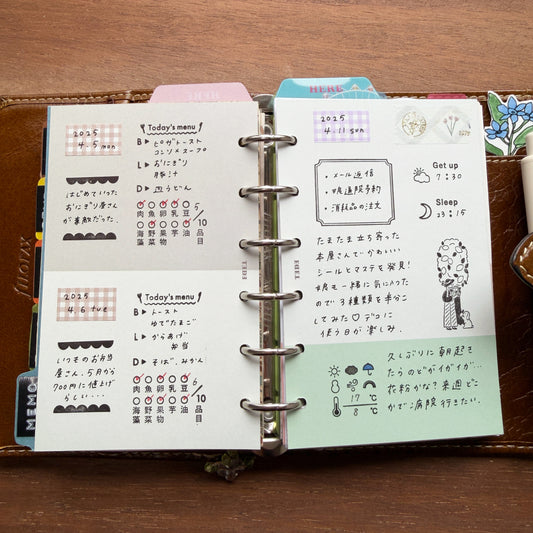 HERE
HERE
2025
4.5 mon
Today's menu
B▸ ピザトースト
コンソメスープ
L▸ おにぎり
豚汁
D▸ 皿うどん
はじめていった
おにぎり屋さん
が素敵だった。
肉魚卵乳豆 5
/10
海野果芋油 品
藻菜物 目
2025
4.6 tue
Today's menu
B▸ トースト
ゆでたまご
L▸ からあげ
弁当
D▸ そば、みかん
いつものお弁当
屋さん、5月から
700円に値上げ
らしい…
肉魚卵乳豆 6
/10
海野果芋油 品
藻菜物 目
MEMO
DIET
2025
4.11 sun
・メール返信
・眼科予約
・消耗品の注文
Get up
7:30
Sleep
23:15
たまたま立ち寄った
本屋さんでかわいい
シールとマステを発見!
娘も一緒に気に入った
ので3種類を半分こ
してみた♡デコに
使う日が楽しみ.
DIET
17 ℃
8 ℃
久しぶりに朝起き
たらのどがイガイガ…
花粉かな?来週どこ
かで病院行きたい.